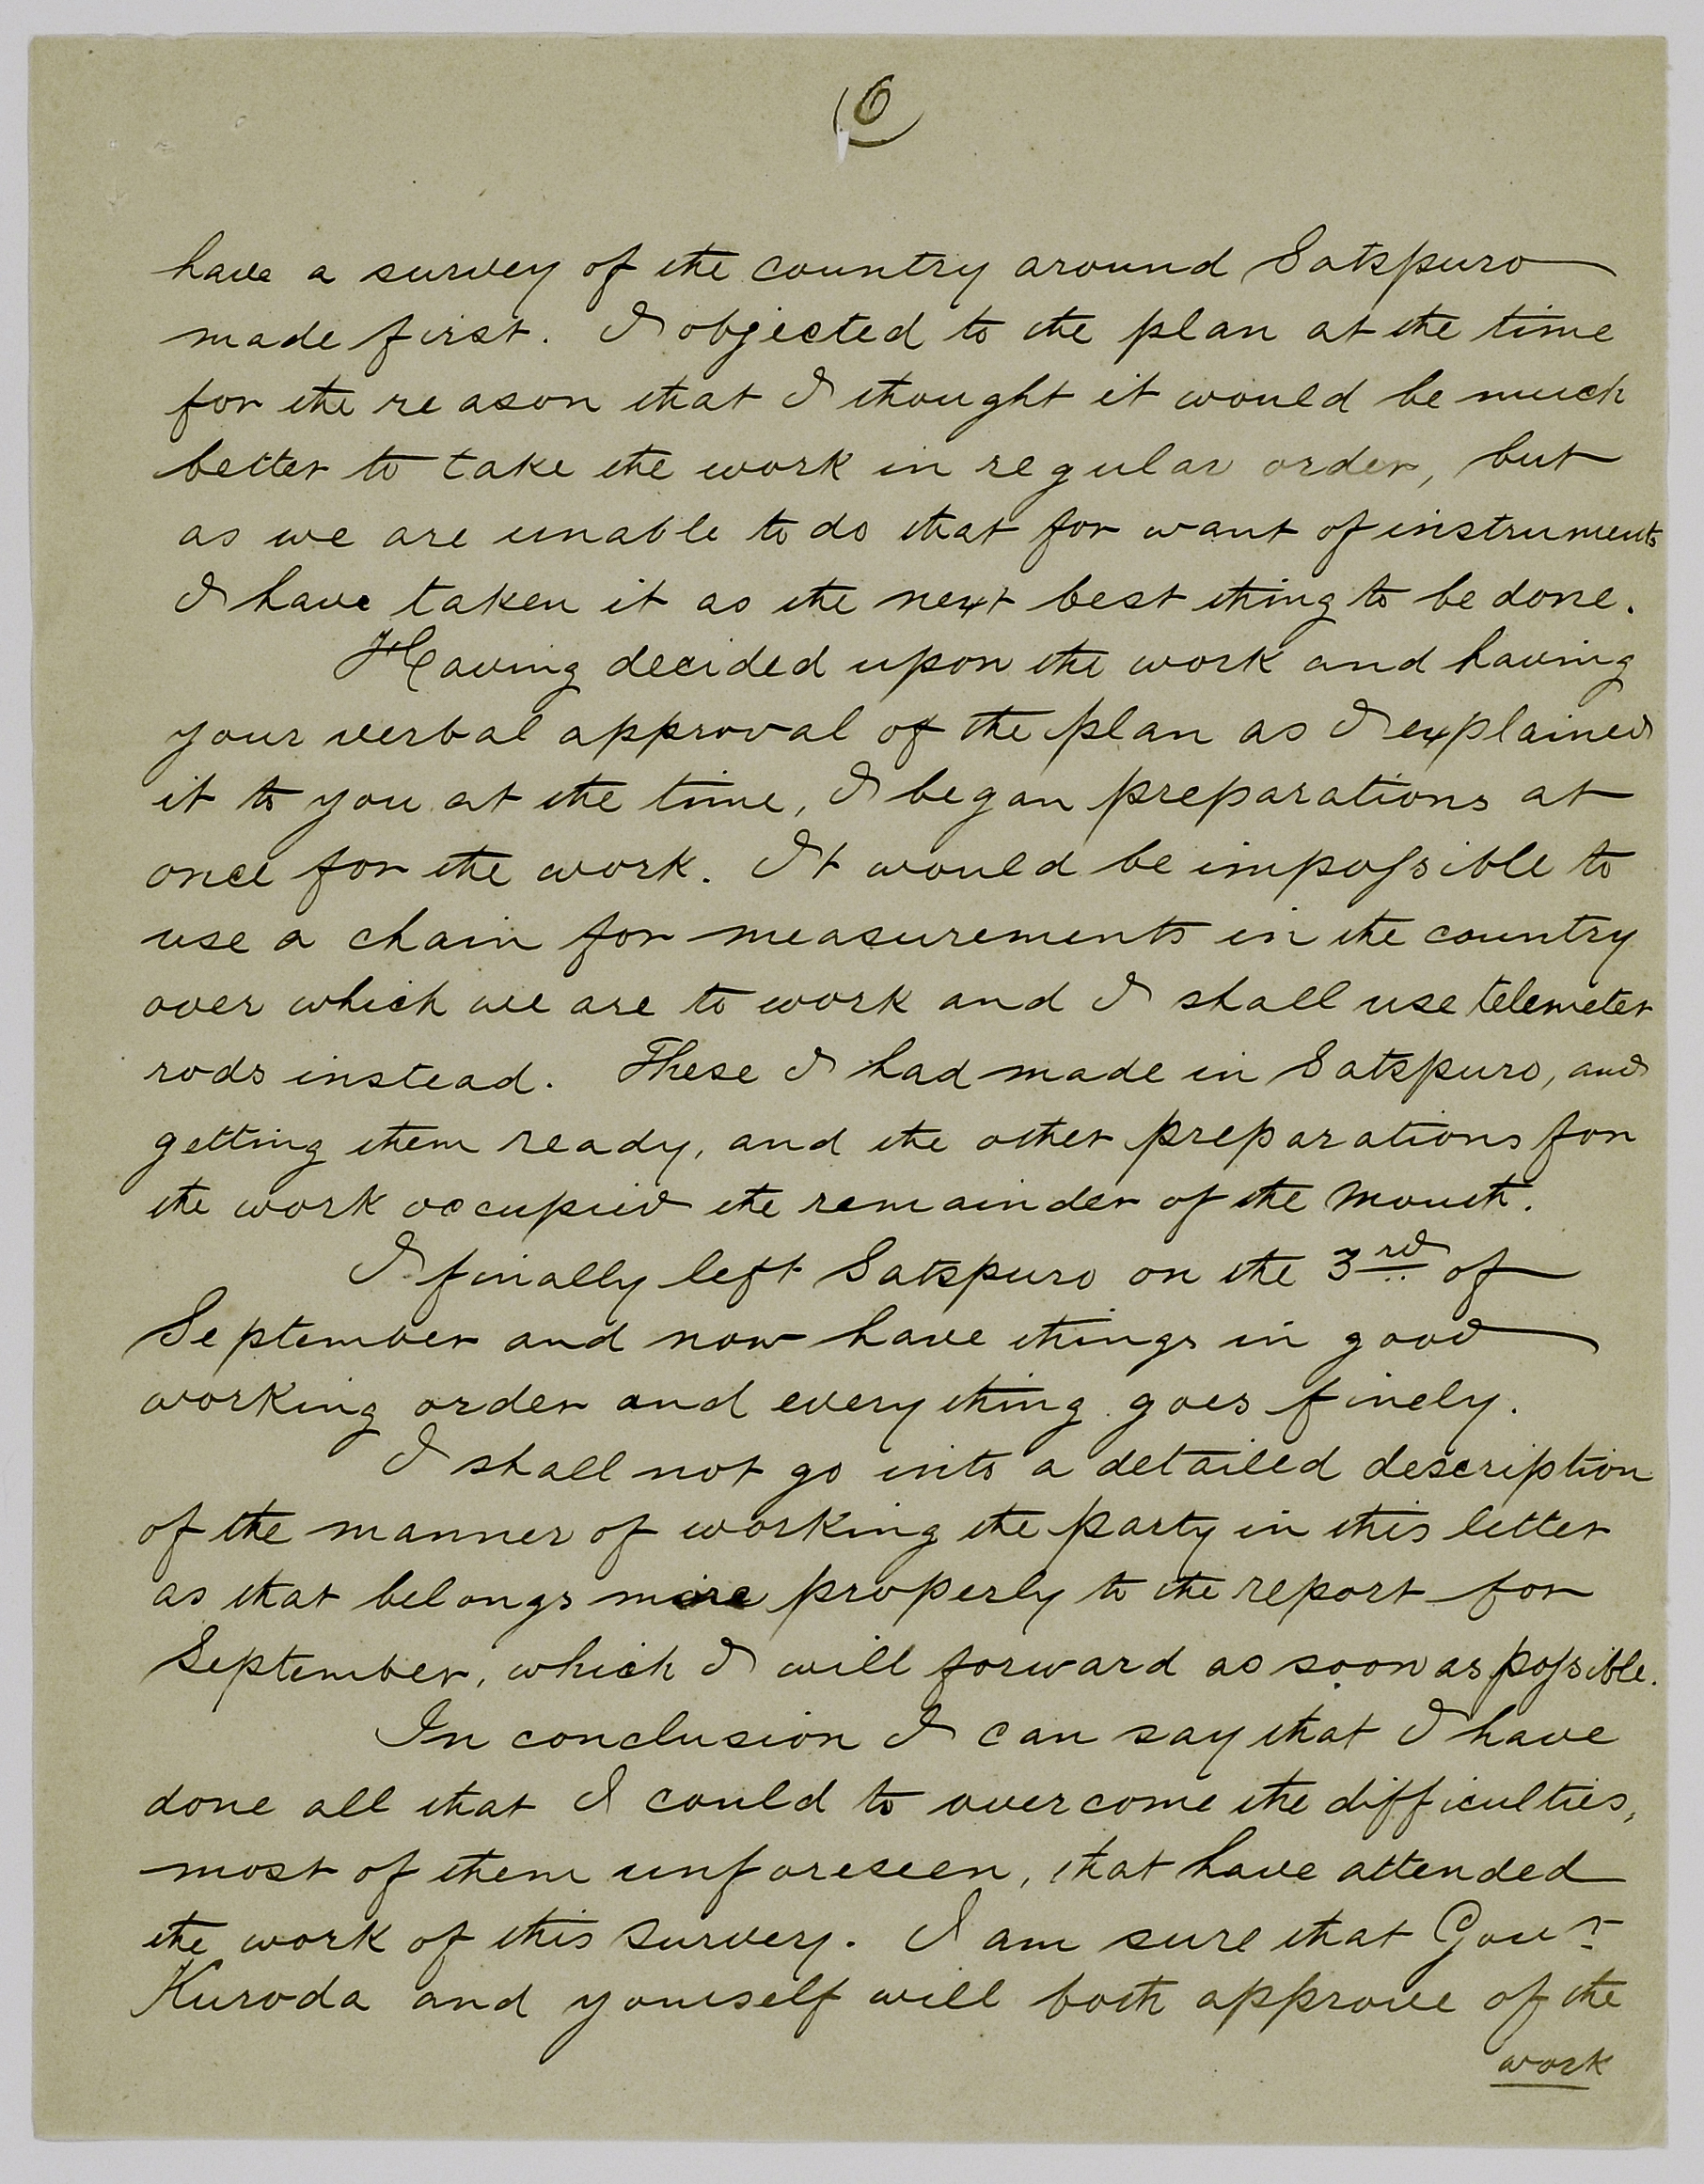 6
have a survey of the country around Satspuro
made first. I objected to the plan at the time
for the reason that I thought it would be much
better to take the work in regular order, but
as we are unable to do that for want of instruments
I have taken it as the next best thing to be done.
Having decided upon the work and having
your verbal approval of the plan as I explained
it to you at the time, I began preparations at
once for the work. It would be impossible to
use a chain for measurements in the country
over which we are to work and I shall use telemeter
rods instead. These I had made in Satspuro, and
getting them ready, and the other preparations for
the work occupied the remainder of the month.
I finally left Satspuro on the 3rd of
September and now have things in good
working order and everything goes finely.
I shall not go into a detailed description
of the manner of working the party in this letter
as that belongs more properly to the report for
September, which I will forward as soon as possible.
In conclusion I can say that I have
done all that I could to overcome the difficulties,
most of them unforeseen, that have attended
the work of this survey. I am sure that Gour
Kuroda and yourself will both approve of the
work